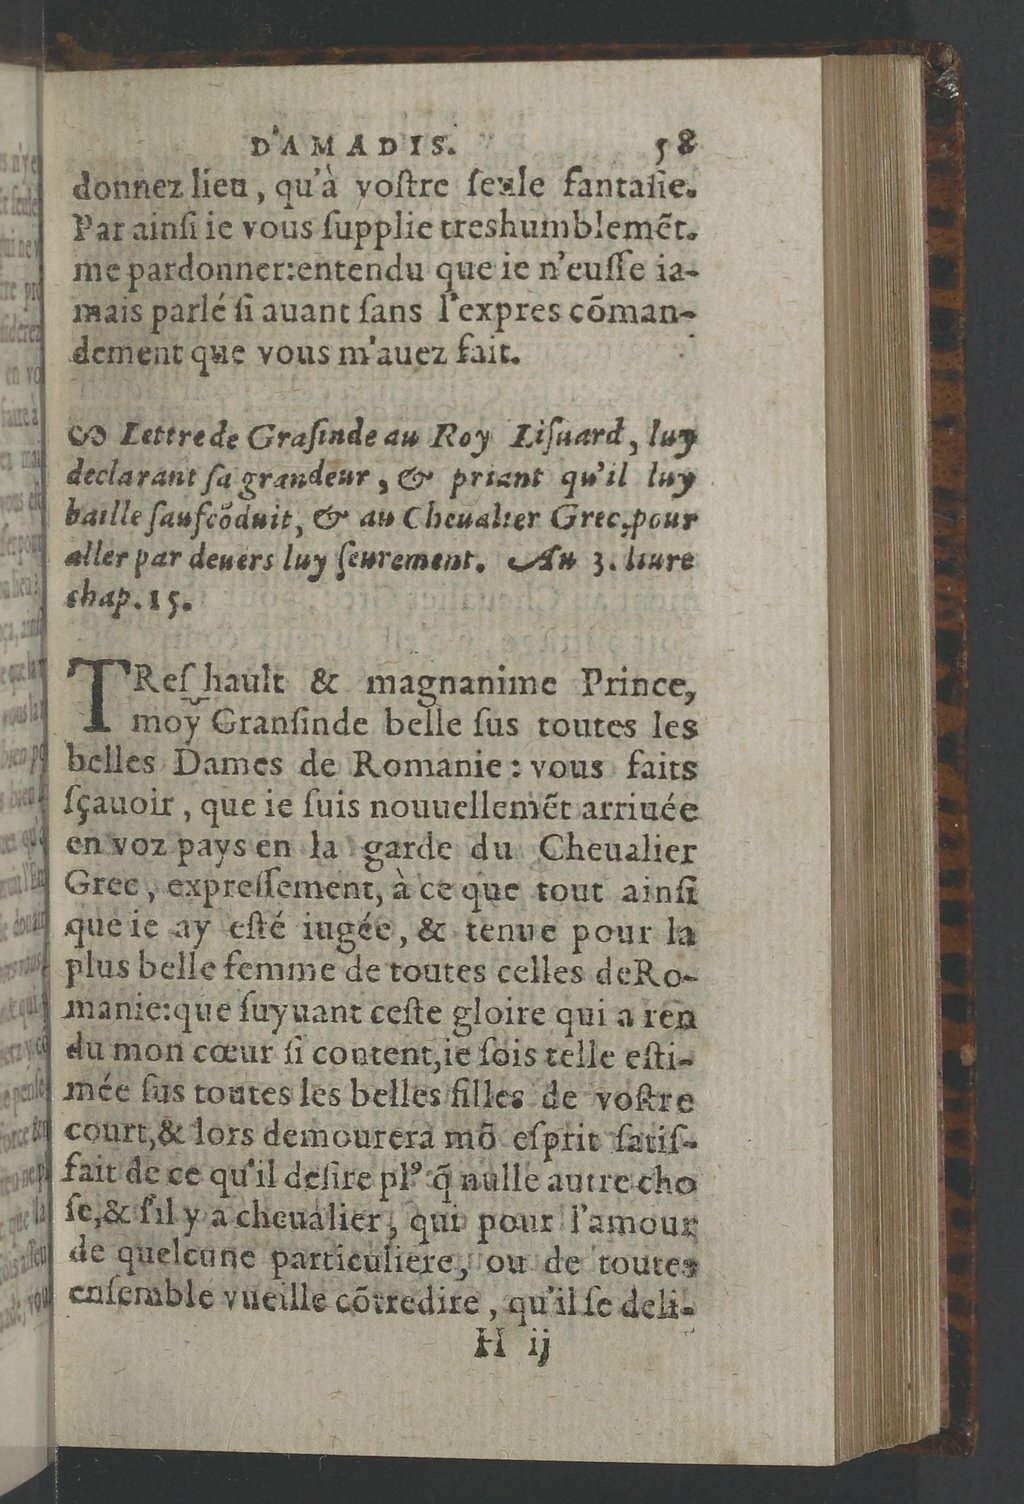 D'AMADIS. 58
donnez lieu, qu'à voſtre ſeule fantaſie.
Par ainſi ie vous ſupplie treshumblemẽt.
me pardonner:entendu que ie n'euſſe ia-
mais parlé ſi auant ſans l'expres cõman-
dement que vous m'auez fait.
Lettre de Graſinde au Roy Liſuard, luy
declarant ſa grandeur, & priant qu'il luy
baille ſaufcõduit, & au Cheualier Grec,pour
aller par deuers luy ſeurement. Au 3. liure
chap.15.
TReſ hault & magnanime Prince,
moy Granſinde belle ſus toutes les
belles Dames de Romanie : vous faits
ſçauoir, que ie ſuis nouuellemẽt arriuée
en voz pays en la garde du Cheualier
Grec, expreſſement, à ce que tout ainſi
que ie ay eſté iugée, & tenue pour la
plus belle femme de toutes celles deRo-
manie:que ſuyuant ceſte gloire qui a ren
du mon cœur ſi content,ie ſois telle eſti-
mée ſus toutes les belles filles de voſtre
court,& lors demourera mõ eſprit ſatiſ-
fait de ce qu'il deſire plꝰ q̃ nulle autre cho
ſe,& ſ'il y a cheualier, qui pour l'amour
de quelcune particuliere, ou de toutes
enſemble vueille cõtredire, qu'il ſe deli-
H ij